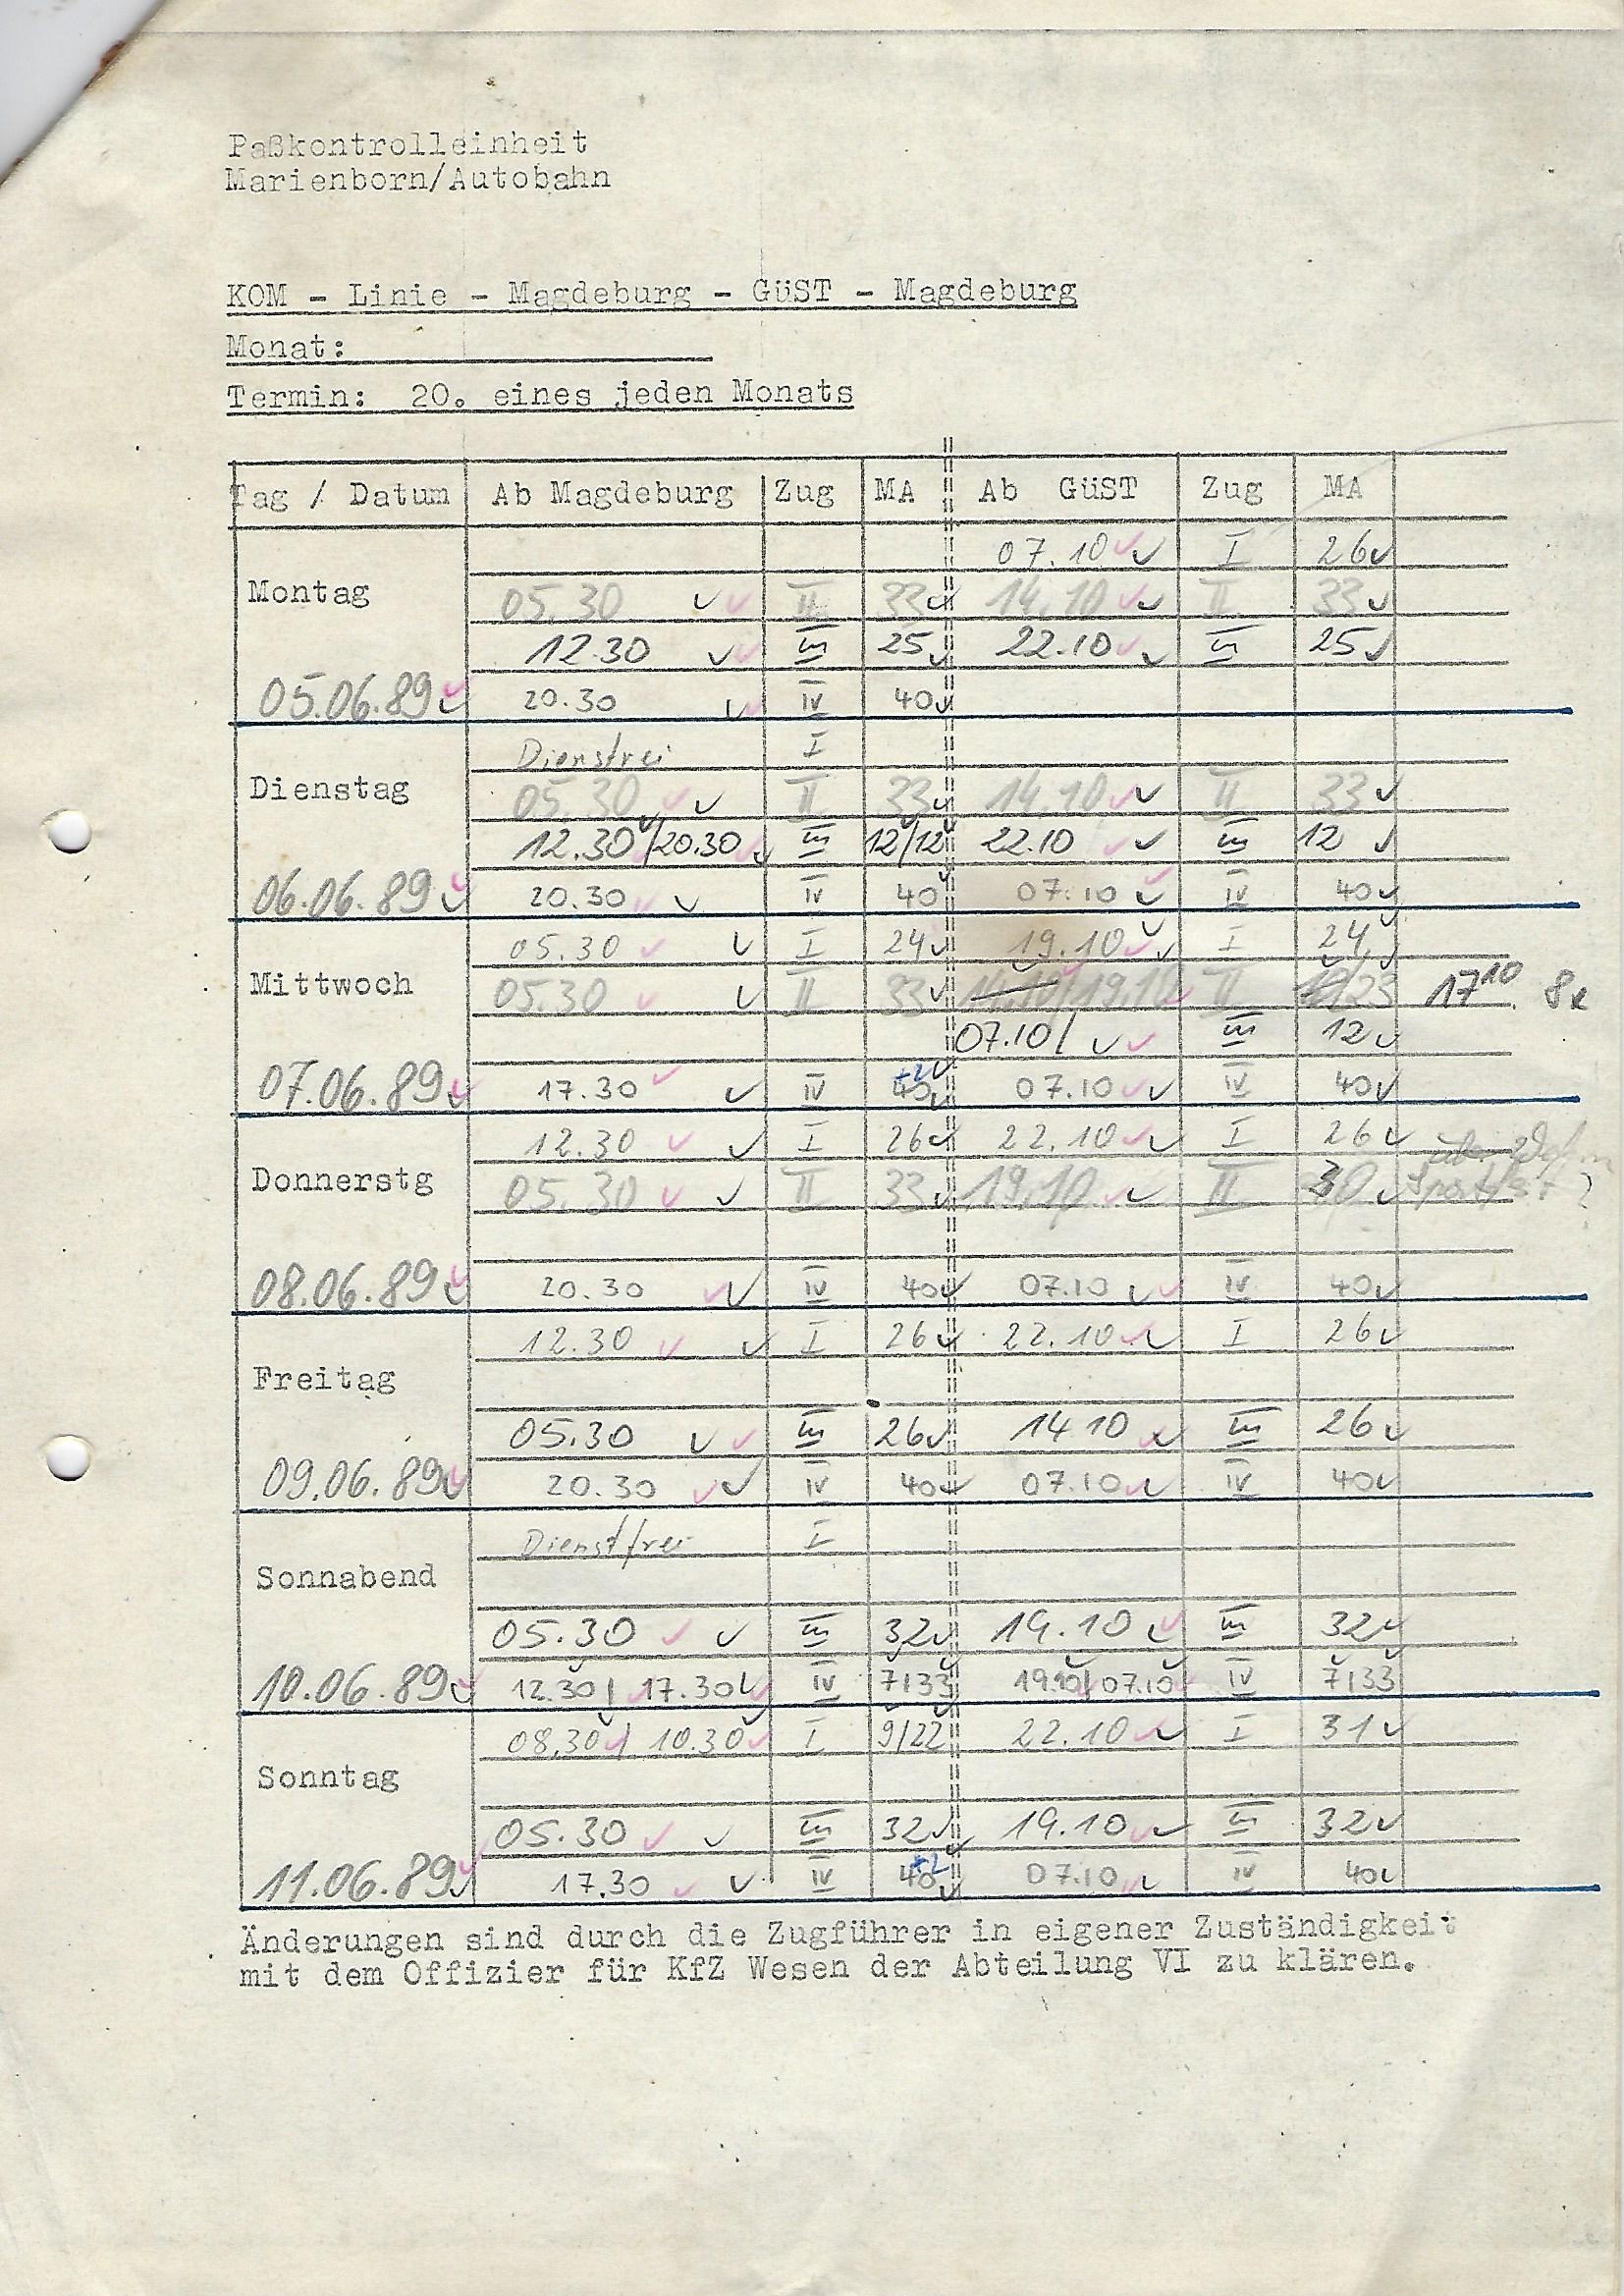 Paßkontrolleinheit
Marienborn/Autobahn
KOM - Linie - Magdeburg - GüST - Magdeburg
Monat:
Termin: 20. eines jeden Monats
Tag / Datum Ab Magdeburg Zug MA Ab GüST Zug MA
07.10 I 26
Montag 05.30 II 33 14.10 II 33
12.30 III 25 22.10 III 25
05.06.89 20.30 IV 40
Dienstfrei I
Dienstag 05.30 II 33 14.10 II 33
12.30/20.30 III 12/12 22.10 III 12
06.06.89 20.30 IV 40 07.10 IV 40
05.30 I 24 19.10 I 24
Mittwoch 05.30 II 33 14.10/19.10 II /23 17 10 8
07.10/ III 12
07.06.89 17.30 IV 40 +2 07.10 IV 40
12.30 I 26 22.10 I 26
Donnerstg 05.30 II 33 19.10 II 30
08.06.89 20.30 IV 40 07.10 IV 40
12.30 I 26 22.10 I 26
Freitag
05.30 III 26 14 10 III 26
09.06.89 20.30 IV 40 07.10 IV 40
Dienstfrei I
Sonnabend
05.30 III 32 19.10 III 32
10.06.89 12.30/17.30 IV 7/33 19.10/07.10 IV 7/33
08.30/10.30 I 9/22 22.10 I 31
Sonntag
05.30 III 32 19.10 III 32
11.06.89 17.30 IV 40 +2 07.10 IV 40
Änderungen sind durch die Zugführer in eigener Zuständigkeit
mit dem Offizier für KfZ Wesen der Abteilung VI zu klären.